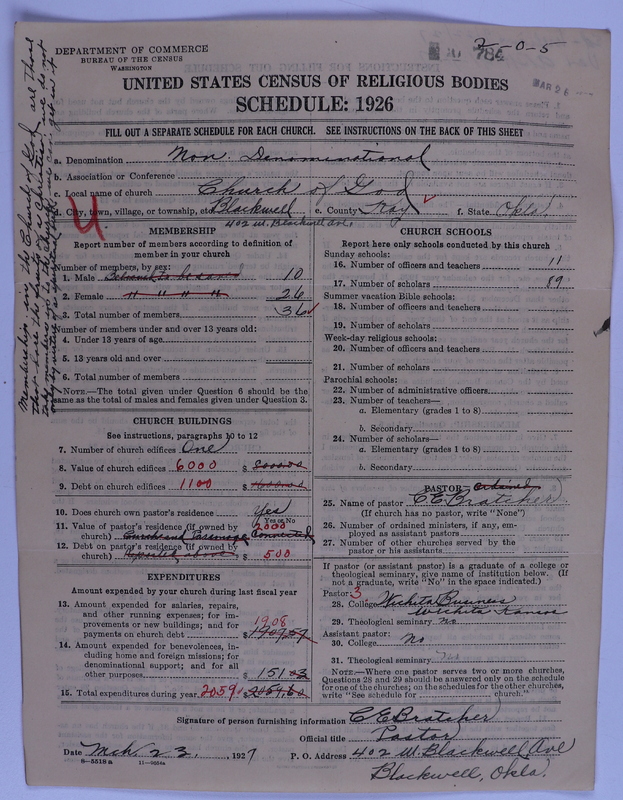 DEPARTMENT OF COMMERCE
BUREAU OF THE CENSUS
WASHINGTON
784
2-0-5
MAR 26
UNITED STATES CENSUS OF RELIGIOUS BODIES
SCHEDULE: 1926
FILL OUT A SEPARATE SCHEDULE FOR EACH CHURCH. SEE INSTRUCTIONS ON THE BACK OF THIS SHEET
a. Denomination Non. Denominational
b. Association or Conference
c. Local name of church Church of God
d. City, town, village, or township, etc. Blackwell e. County Kay f. State Okla.
402 W. Blackwell Ave.
4
Membership in the Church of God are those
that bare the fruits of a Christian
MEMBERSHIP
Report number of members according to definition of
member in your church
Number of members, by sex:
1. Male 10
2. Female " " " " 26
3. Total number of members 36
Number of members under and over 13 years old:
4. Under 13 years of age
5. 13 years old and over
6. Total number of members
NOTE.—The total given under Question 6 should be the
same as the total of males and females given under Question 3.
CHURCH BUILDINGS
See instructions, paragraphs 10 to 12
7. Number of church edifices One
8. Value of church edifices 6000 $
9. Debt on church edifices 1100 $
10. Does church own pastor's residence? Yes
Yes or No
11. Value of pastor's residence (if owned by
church) Church and Parsonage Connected 2000
12. Debt on pastor's residence (if owned by
church) Reported above $ 500
EXPENDITURES
Amount expended by your church during last fiscal year
13. Amount expended for salaries, repairs,
and other running expenses; for im-
provements or new buildings; and for
payments on church debt $ 1907.57
1908
14. Amount expended for benevolences, in-
cluding home and foreign missions; for
denominational support; and for all
other purposes $ 151 03
15. Total expenditures during year 2059 $ 2059.60
CHURCH SCHOOLS
Report here only schools conducted by this church
Sunday schools:
16. Number of officers and teachers 11
17. Number of scholars 89
Summer vacation Bible schools:
18. Number of officers and teachers
19. Number of scholars
Week-day religious schools:
20. Number of officers and teachers
21. Number of scholars
Parochial schools:
22. Number of administrative officers
23. Number of teachers—
a. Elementary (grades 1 to 8)
b. Secondary
24. Number of scholars—
a. Elementary (grades 1 to 8)
b. Secondary
PASTOR Ordained
25. Name of pastor C E Bratcher
(If church has no pastor, write "None")
26. Number of ordained ministers, if any, em-
ployed as assistant pastors
27. Number of other churches served by the
pastor or his assistants
If pastor (or assistant pastor) is a graduate of a college or
theological seminary, give name of institution below. (If
not a graduate, write "No" in the space indicated.)
Pastor: 3
28. College Wichita Business
Wichita Kansas
29. Theological seminary no
Assistant pastor:
30. College No
31. Theological seminary No
NOTE.—Where one pastor serves two or more churches,
Questions 28 and 29 should be answered only on the schedule
for one of the churches; on the schedules for the other churches,
write "See schedule for church."
Signature of person furnishing information C E Bratcher
Official title Pastor
Date Mch 23, 1927 P. O. Address 402 W. Blackwell Ave
8-5518 a 11-9654a
Blackwell, Okla.